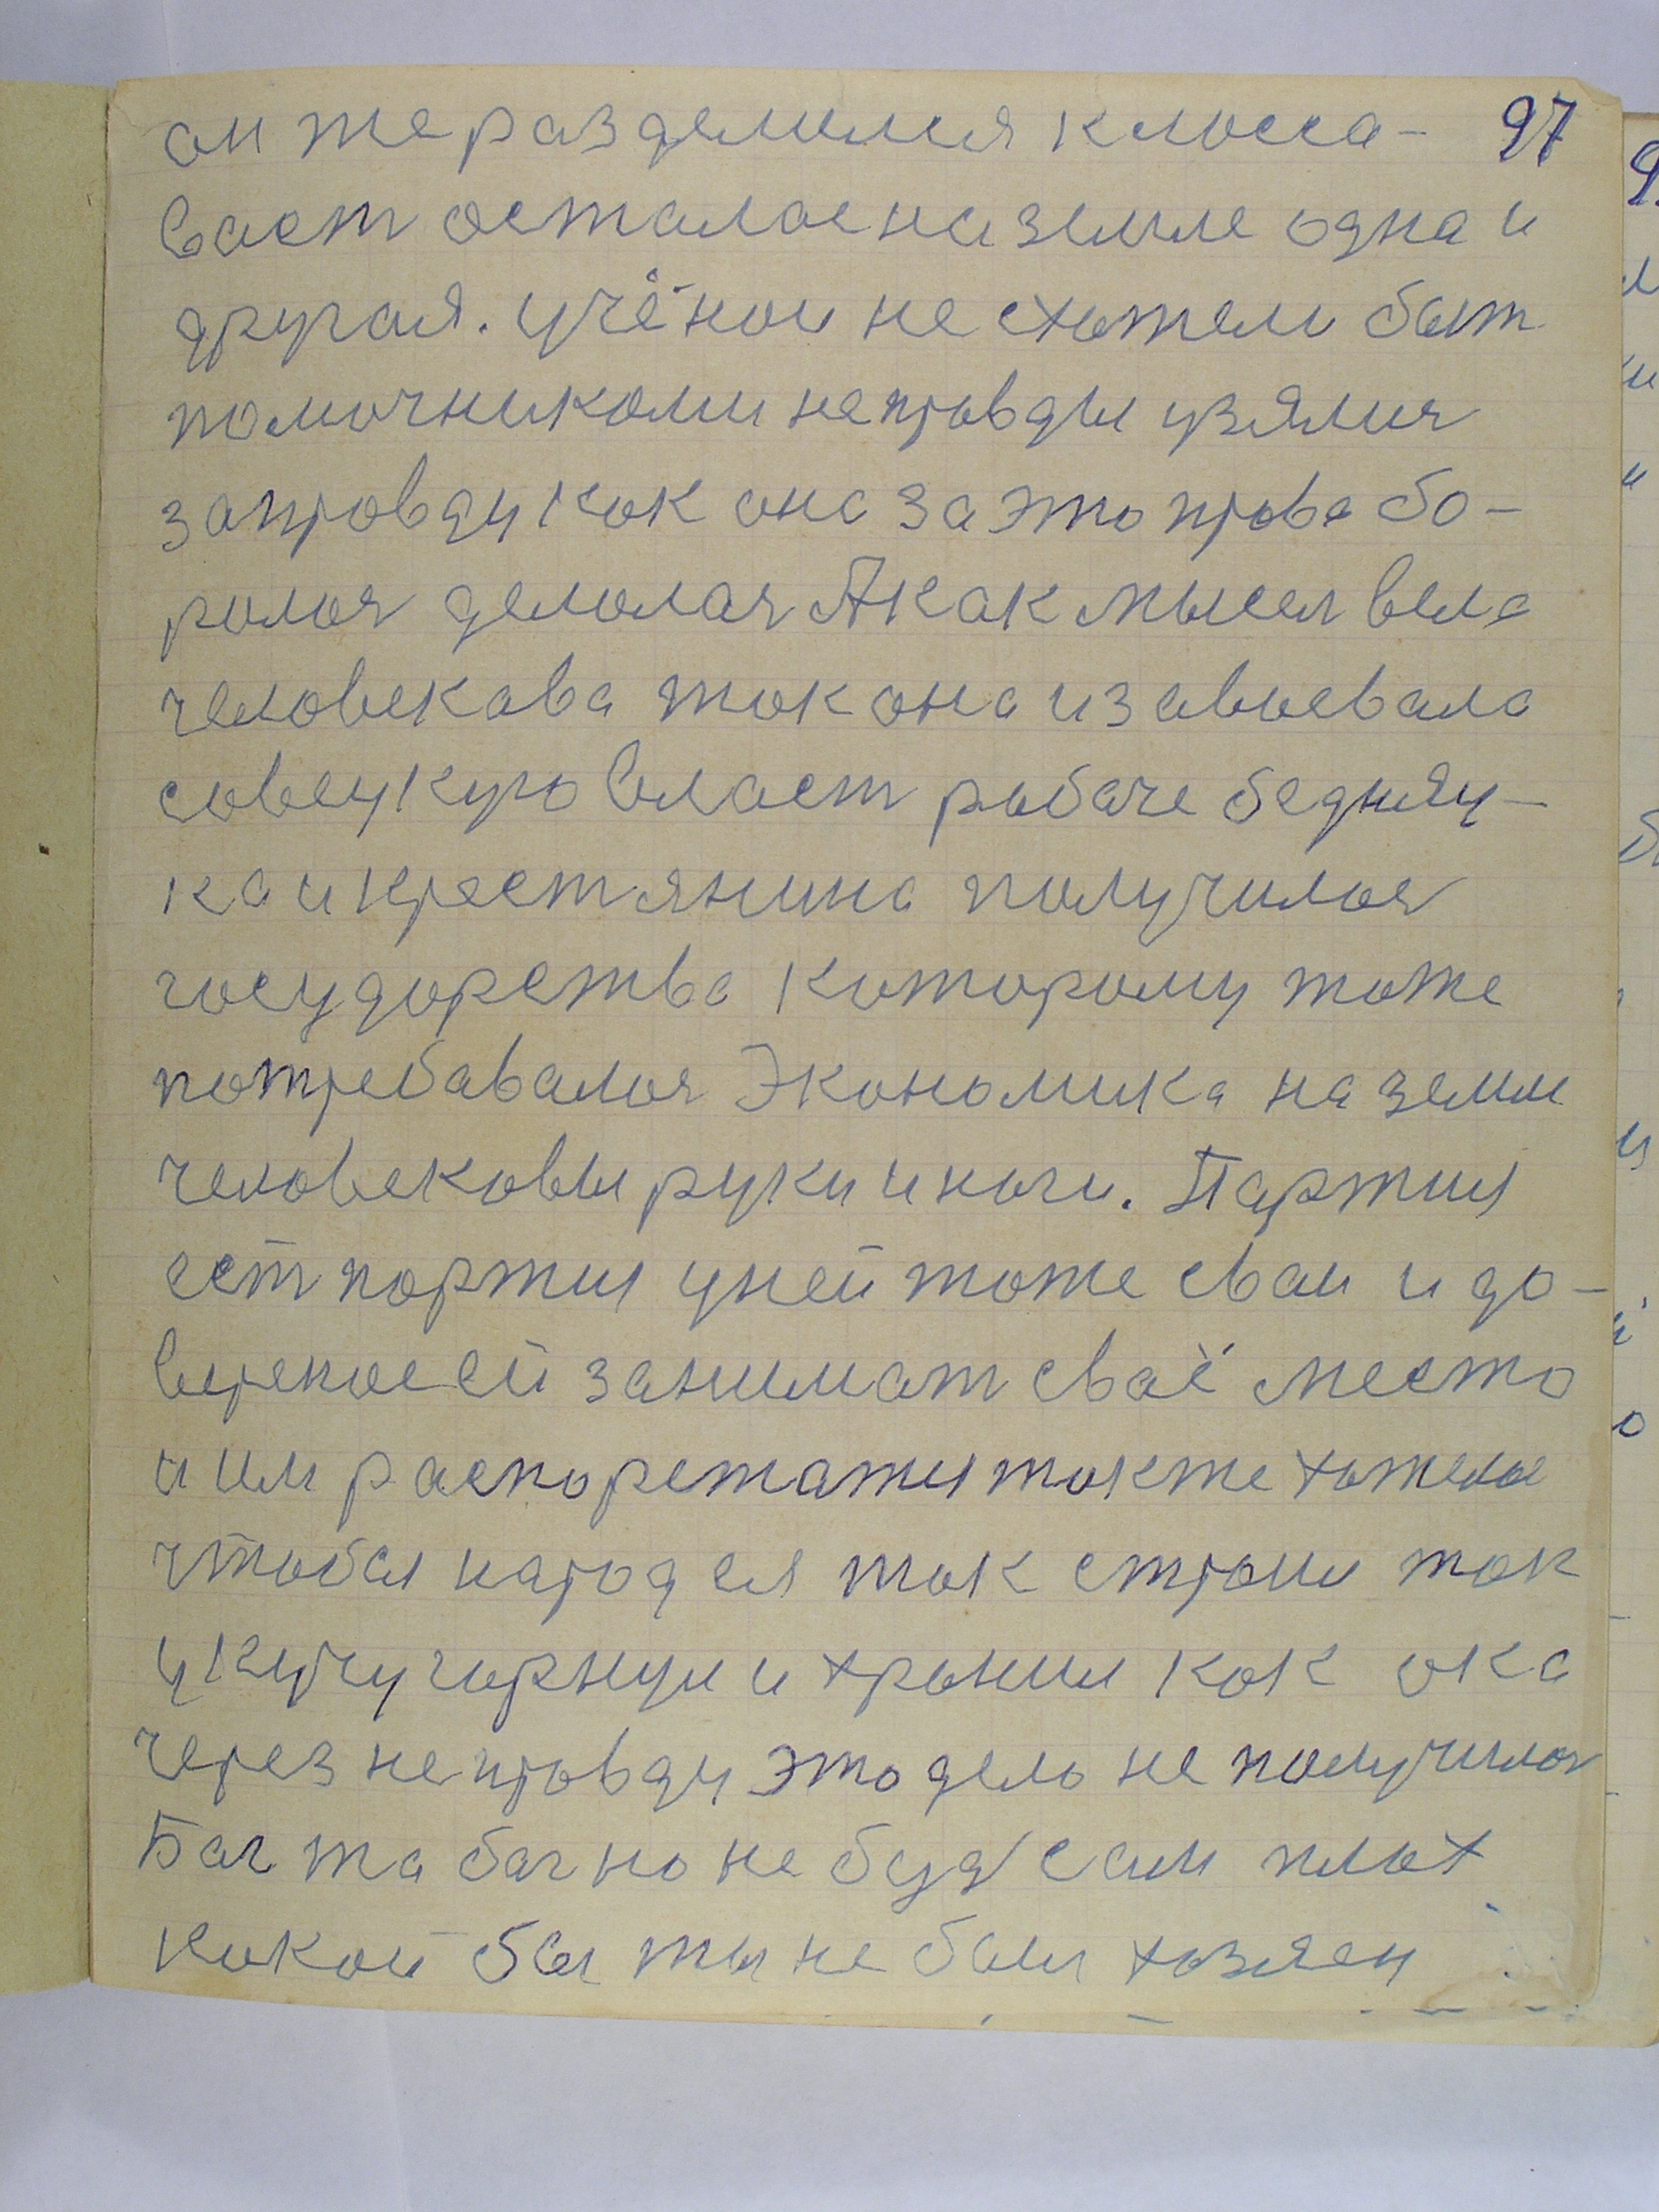 он же разделился класса- 97
васт осталос на земле одна и
другая. Учёнои не схотели быт
помочниками неправды узялися
заправду как она за это права бо-
ролоя делолоя А как мысел вела
человекава ток она и завоевала
совецкую власт рабаче бедняц-
ка и крестянина получилоя
государства которому тоже
потребавалоя Экономика на земли
человековы руки и ноги. Партия
ест портия уней тоже сваи и до-
верепое ей занимат сваё место
и им распорежатия токже хотелое
чтобы народ ея ток строил ток
укучу горнул и хранил как ока
через неправду это дело не получилоя
Баг та баг но не буд сам плох
какои бы ты не был хозяец